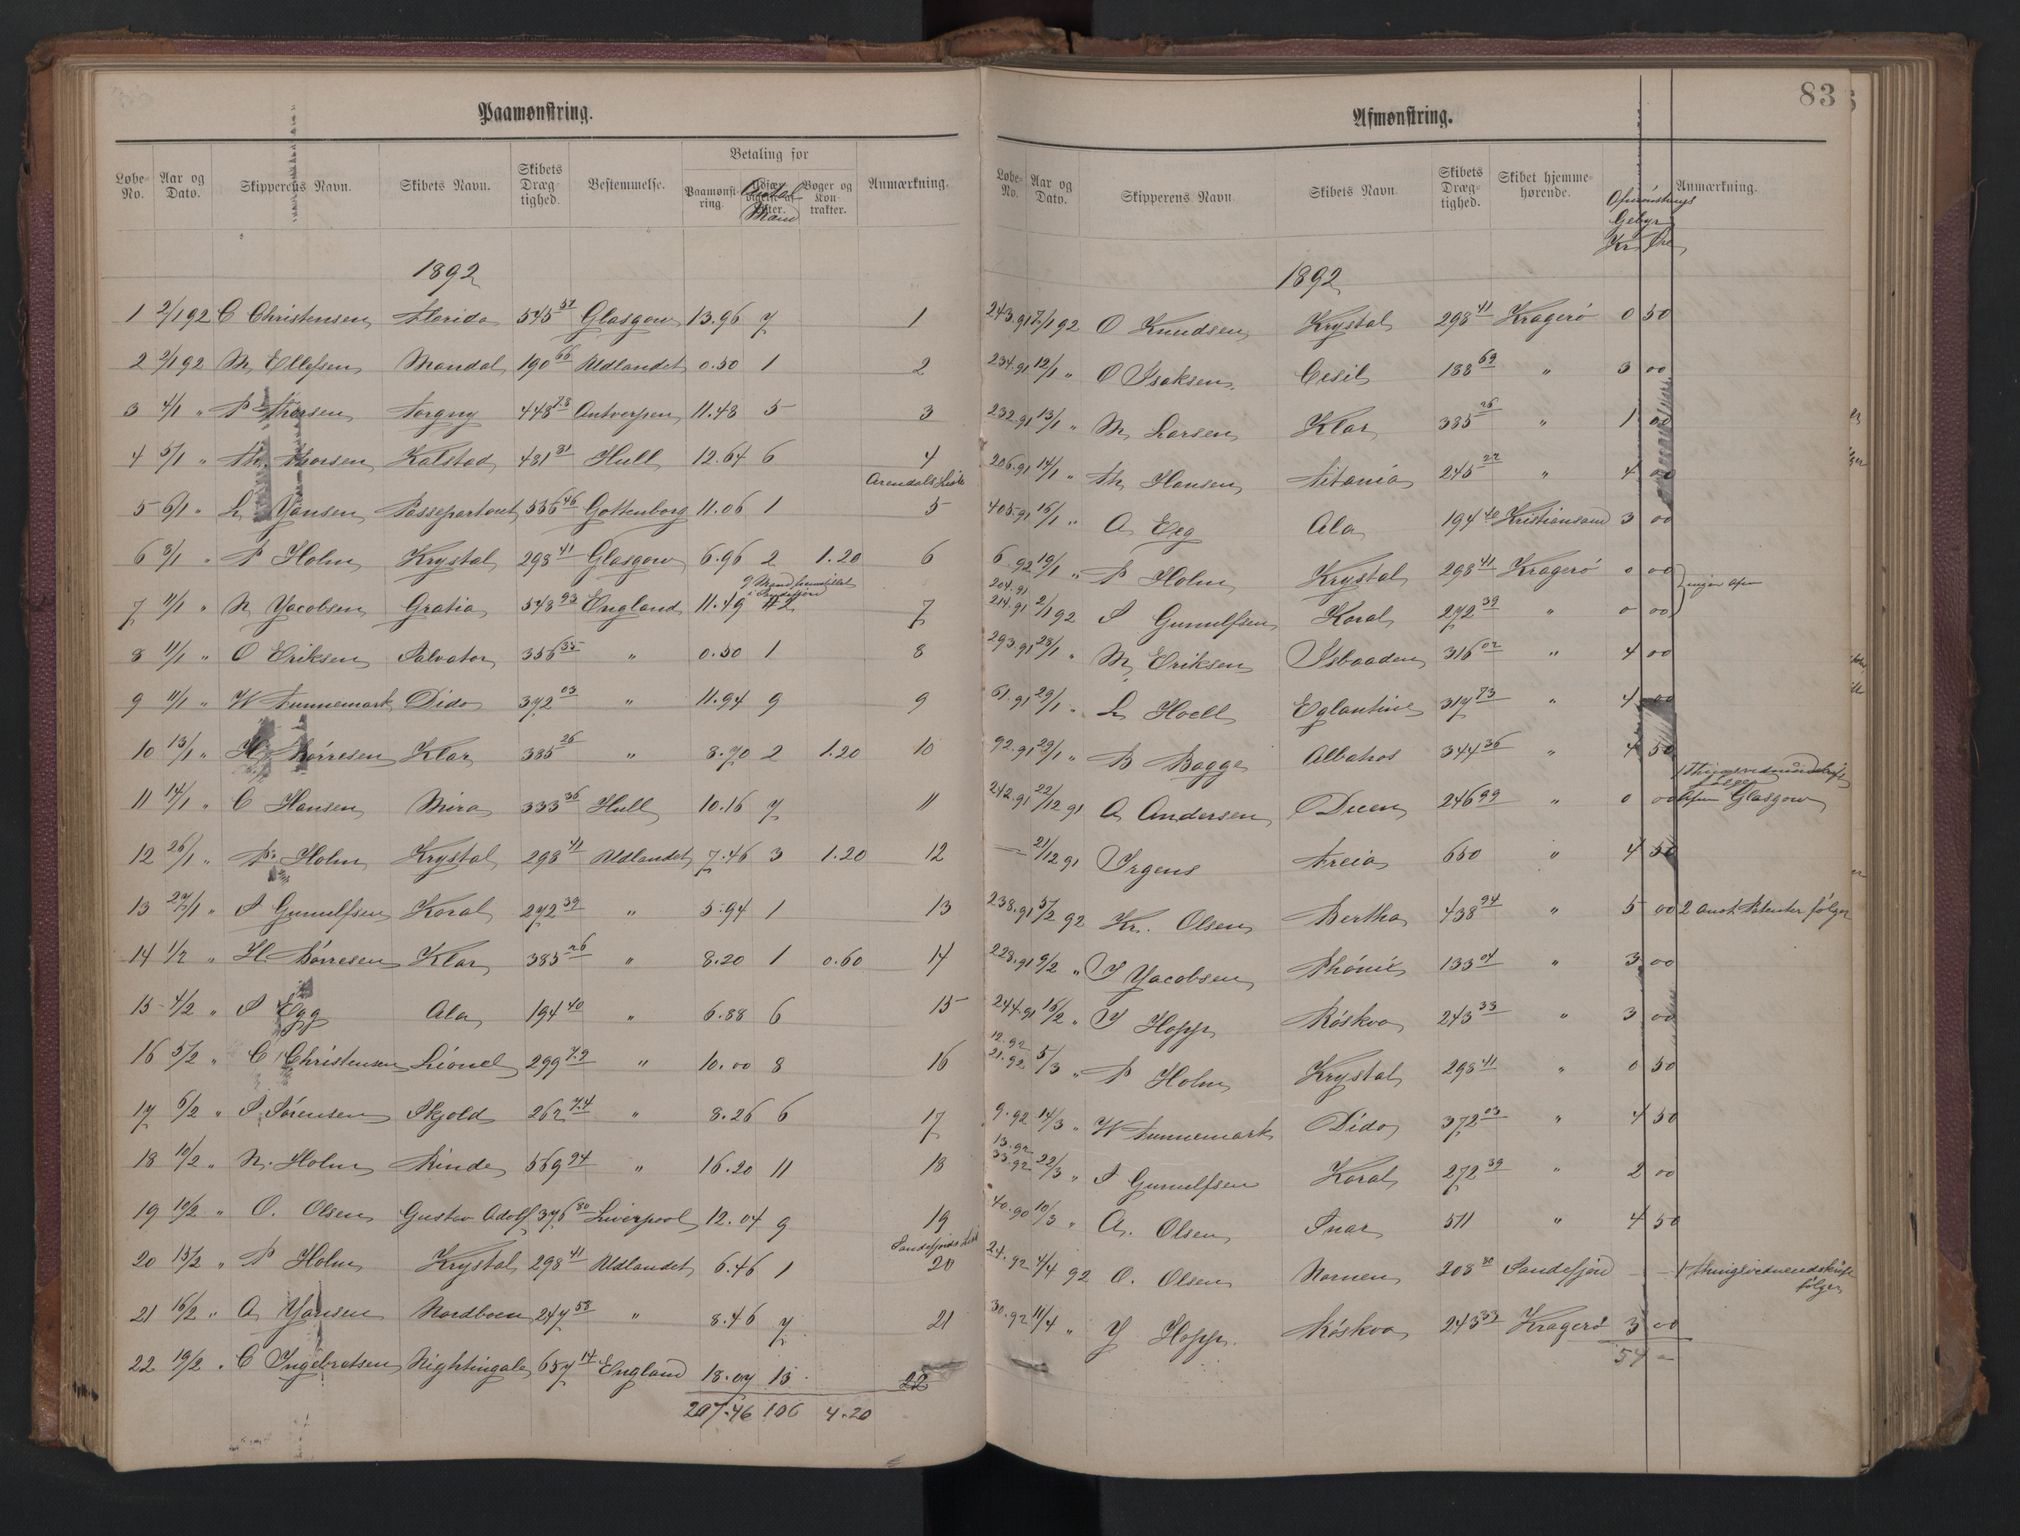 83
Paamønstring.
Løbe-No. Aar og Dato. Skipperens Navn. Skibets Navn. Skibets Dræg tighed. Bestemmelse. Betaling for Paamønst-ring. Antal Mand Bøger og Kon trakter. Anmærkning.
1892
1 2/1 92 C Christensen Florida 545 57 Glasgow 13.96 7 1
2 2/1 92 M Ellefsen Mandal 190 66 Udlandet 0.50 1 2
3 4/1 " P Thorsen Torgny 448 78 Antverpen 11.48 5 3
4 5/1 " Th. Thorsen Kalstad 481 81 Hull 12.64 6 4
Arendals Liste
5 6/1 " L Jansen Passepartout 536 46 Gottenborg 11.06 1 5
6 8/1 " P Holm Krystal 298 41 Glasgow 6.96 2 1.20 6
9 Mand
7 11/1 " N Jacobsen Gratia 548 93 England 11.49 2 7
8 11/1 " O Eriksen Salvator 356 35 " 0.50 1 8
9 11/1 " W Tunnemark Dido 372 03 " 11.94 9 9
10 13/1 " H Børresen Klar 385 26 " 8.70 2 1.20 10
11 14/1 " C Hansen Mira 333 36 Hull 10.16 7 11
12 26/1 " P. Holm Krystal 298 41 Udlandet 7.46 3 1.20 12
13 27/1 " S Gunulfsen Koral 272 39 " 5.94 1 13
14 1/2 " H. Børresen Klar 385 26 " 8.20 1 0.60 14
15 4/2 " S Egg Ala 194 40 " 6.88 6 15
16 5/2 " C Christensen Lionel 299 72 " 10.00 8 16
17 6/2 " S Sørensen Skjold 262 74 " 8.26 6 17
18 10/2 " N. Holm Rinde 569 24 " 16.20 11 18
19 10/2 " O. Olsen Gustav Adolf 376 80 Liverpool 12.04 9 19
Sandefjords List
20 15/2 " P Holm Krystal 298 41 Udlandet 6.46 1 20
21 16/2 " A Jansen Nordboen 247 58 " 8.46 7 21
22 19/2 " C Ingebretsen Nightingale 657 14 England 18.07 13 22
207.46 106 4.20
Afmønstring.
Løbe-No. Aar og Dato. Skipperens Navn. Skibets Navn. Skibets Dræg-tighed. Skibet hjemme-hørende. Afmønstrings Gebyr Kr Øre Anmærkning.
1892
243.91 7/1 92 O Knudsen Krystal 298 41 Kragerø 0 50
234.91 12/1 " O Isaksen Cesil 188 69 " 3 00
232.91 13/1 " M Larsen Klar 385 26 " 1 00
206.91 14/1 " Th Hansen Titania 245 22 " 4 00
405.91 16/1 " A Egg Ala 194 40 Kristiansand 3 00
6.92 19/1 " P Holm Krystal 298 41 Kragerø 0 00
204.91
214.91 2/1 92 S Gunulfsen Koral 272 39 " 0 00
293.91 28/1 " M Eriksen Isbaaden 316 02 " 4 00
61.91 29/1 " L Hoell Eglantine 317 73 " 4 00
92.91 29/1 " B Bagge Albatros 344 36 " 4 50
242.91 22/12 91 A Andersen Duen 246 99 " 0 00 Glasgow
— 21/12 91 Irgens Freia 650 " 4 50
238.91 5/2 92 Kr. Olsen Bertha 438 94 " 5 00 2 følger
228.91 9/2 " J Jacobsen Phønix 133 04 " 3 00
244.91 16/2 " J Hopp Röskva 243 33 " 3 00
12.92
21.92 5/3 " P Holm Krystal 298 41 " 0 50
9.92 14/3 " W Tunnemark Dido 372 03 " 4 50
13.92
33.92 22/3 " S Gunulfsen Koral 272 39 " 2 00
40.90 10/3 " A. Olsen Snar 511 " 4 50
24.92 4/4 92 O. Olsen Nornen 208 80 Sandefjord — — følger
30.92 11/4 " J Hopp. Röskva 243 33 Kragerø 3 00
54 -